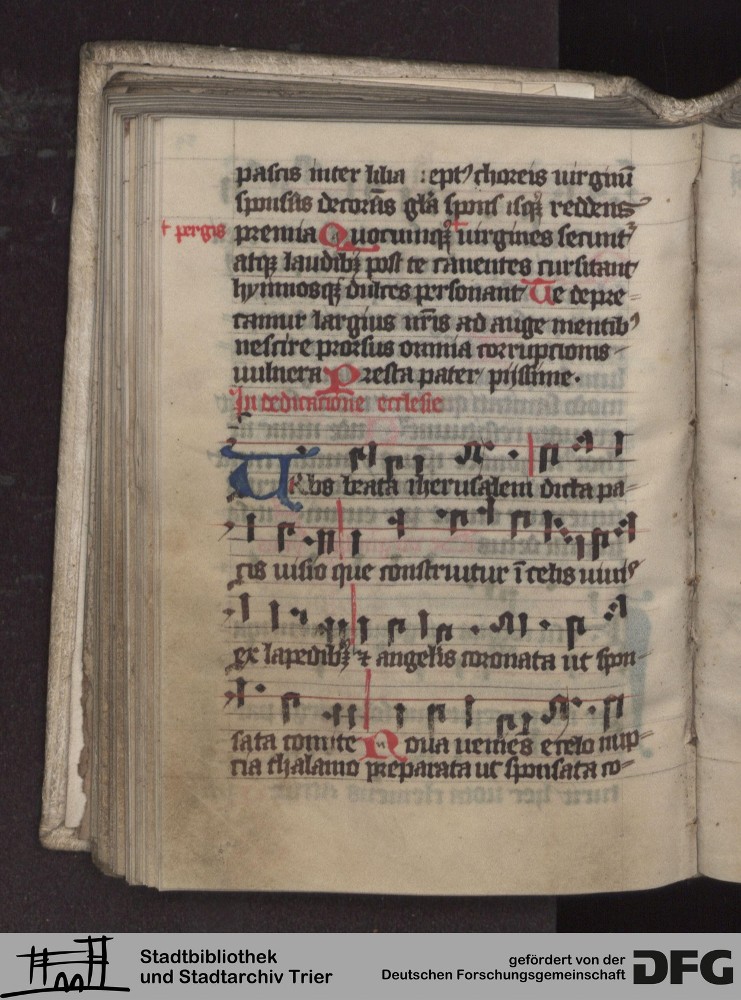 pascis inter lilia septꝰ choreis uirginū
sponsus decorus gl̄a sponsisqꝫ reddens
premia Quocumqꝫ uirgines secunt᷑
† pergis
atqꝫ laudibꝫ post te canentes cursitant
hymnosqꝫ dulces personant Te depre-
camur largius nr̄is ad auge mentibꝰ
nescire prorsus omnia corrupcionis
uulnera Presta pater pijssime.
In dedicacione ecclesie
URbs beata iherusalem dicta pa-
cis uisio que construitur ī celis uiuis
ex lapidibꝫ ⁊ angelis coronata ut spon-
sata comite Noua ueniēs e celo nup-
cia thalamo preparata ut sponsata co-
Stadtbibliothek
und Stadtarchiv Trier
gefördert von der
Deutschen Forschungsgemeinschaft
DFG